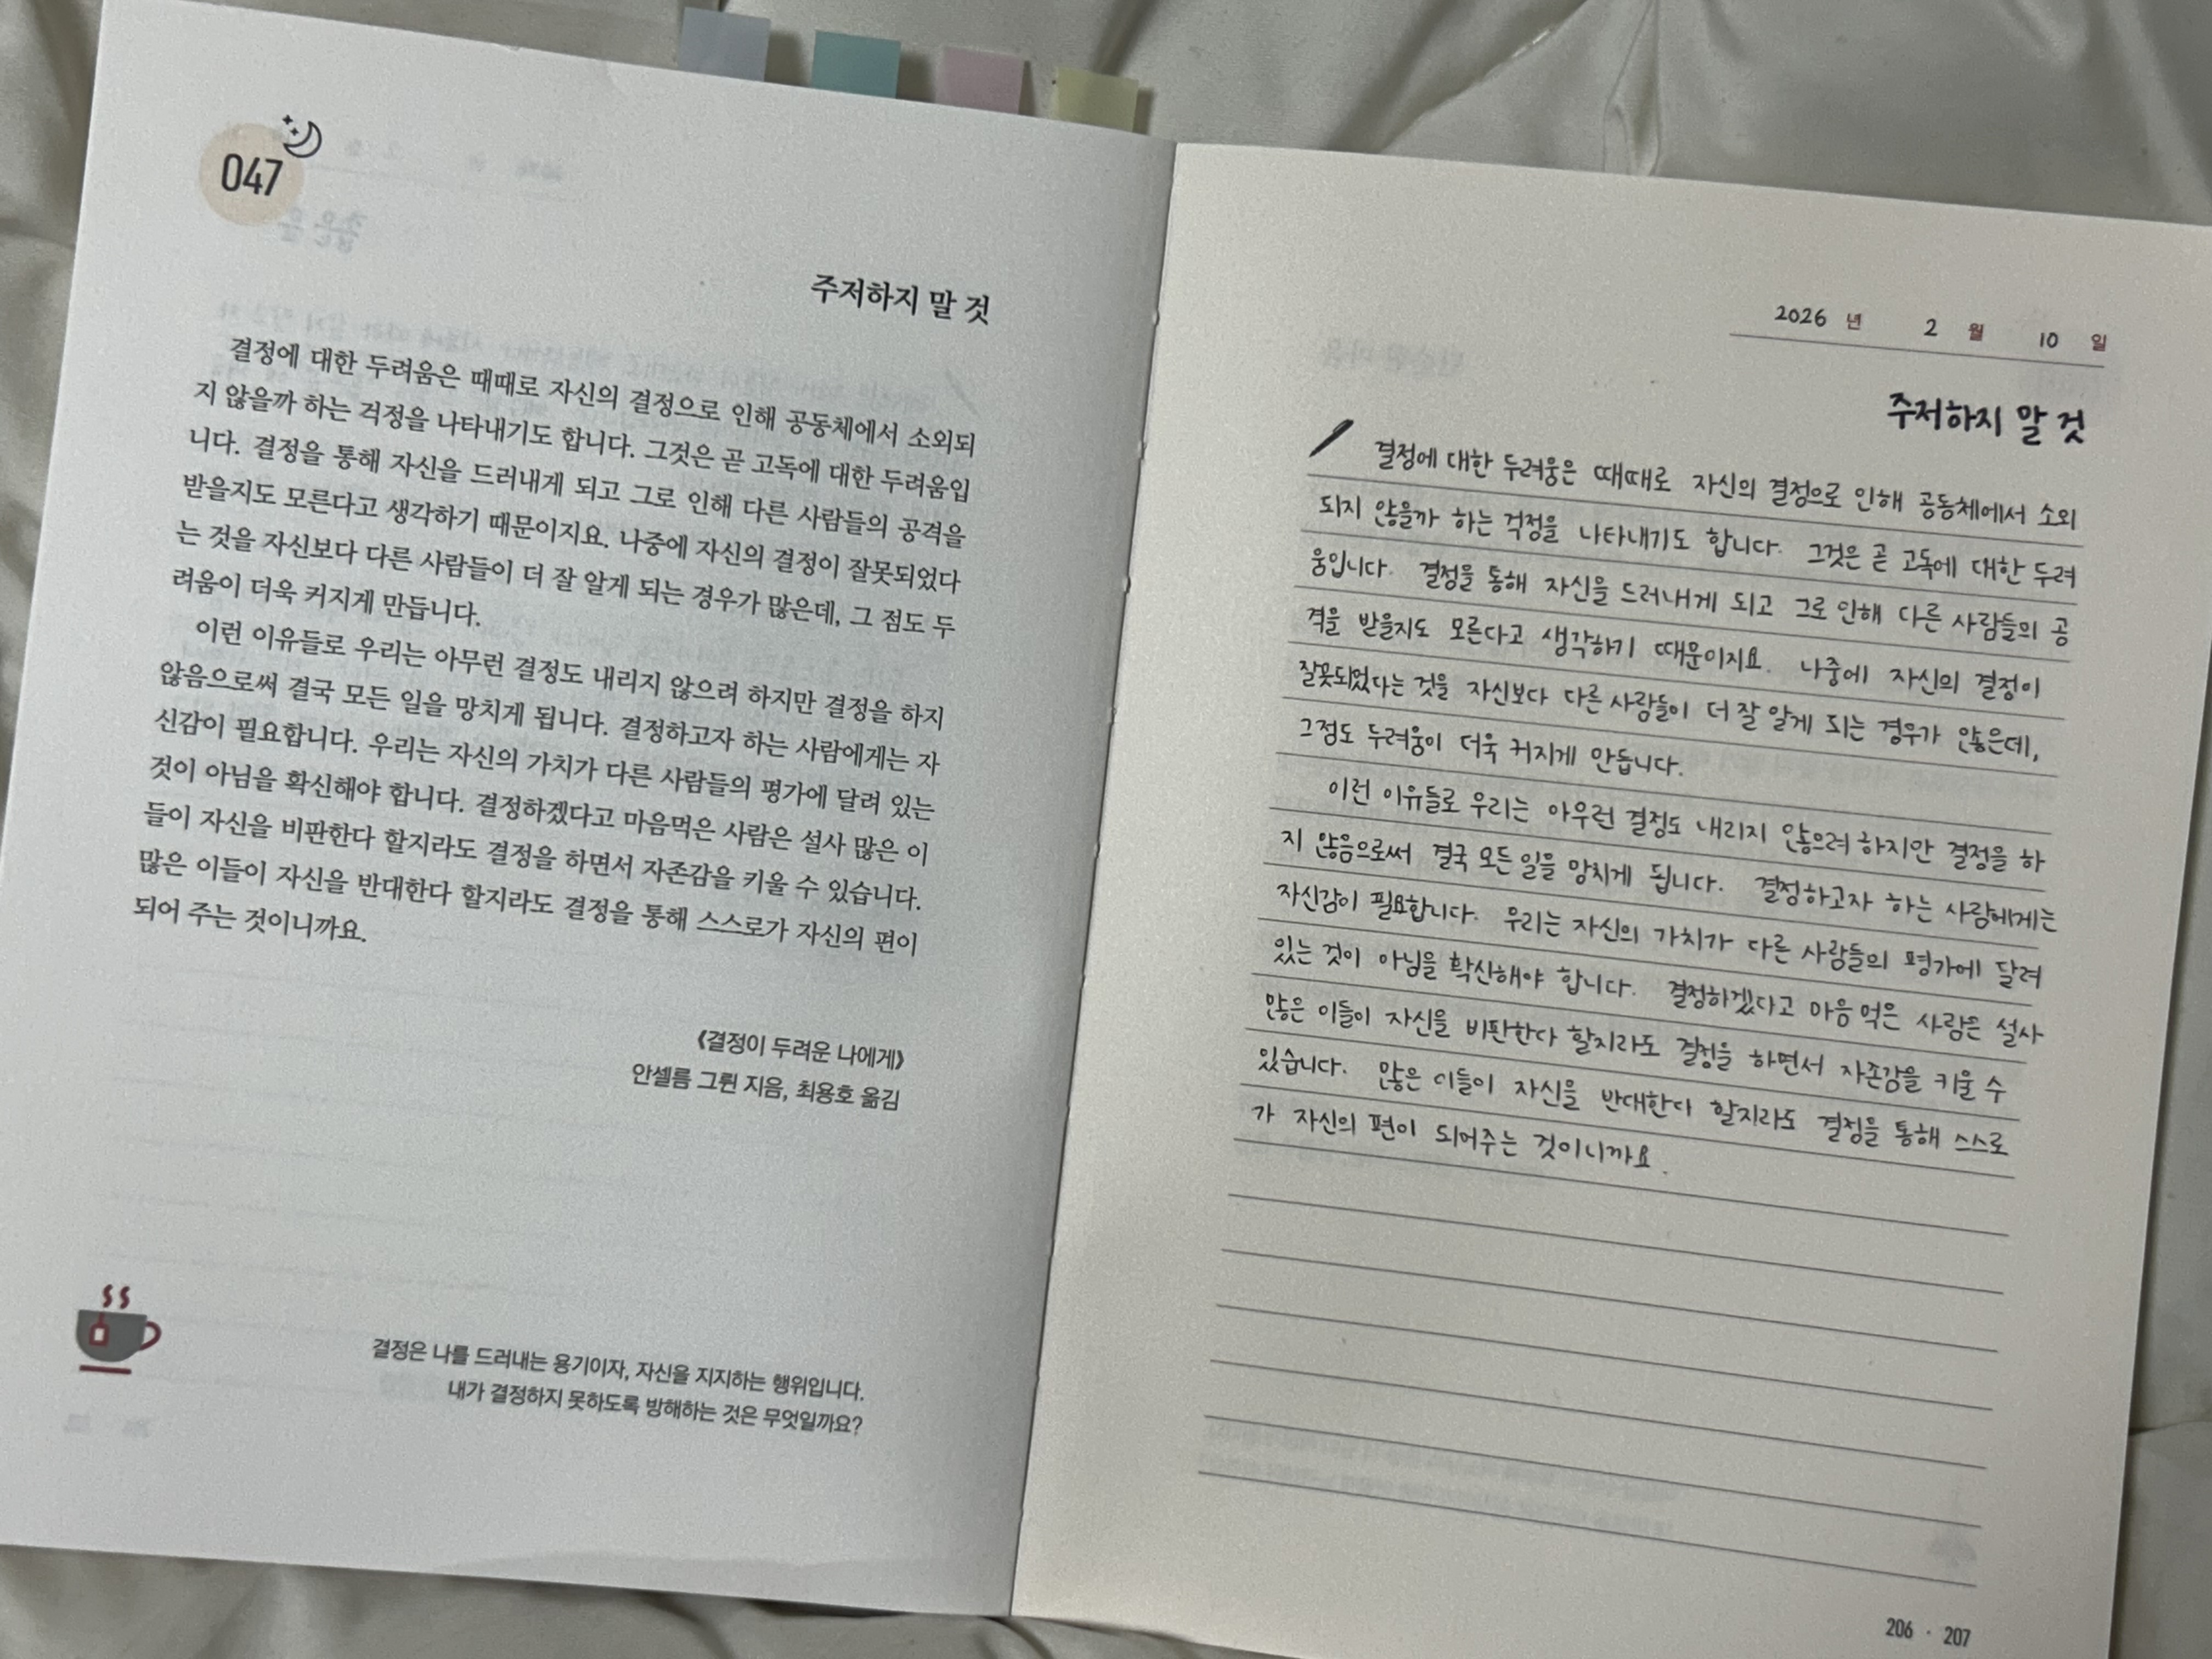 047
주저하지 말 것
결정에 대한 두려움은 때때로 자신의 결정으로 인해 공동체에서 소외되
지 않을까 하는 걱정을 나타내기도 합니다. 그것은 곧 고독에 대한 두려움입
니다. 결정을 통해 자신을 드러내게 되고 그로 인해 다른 사람들의 공격을
받을지도 모른다고 생각하기 때문이지요. 나중에 자신의 결정이 잘못되었다
는 것을 자신보다 다른 사람들이 더 잘 알게 되는 경우가 많은데, 그 점도 두
려움이 더욱 커지게 만듭니다.
이런 이유들로 우리는 아무런 결정도 내리지 않으려 하지만 결정을 하지
않음으로써 결국 모든 일을 망치게 됩니다. 결정하고자 하는 사람에게는 자
신감이 필요합니다. 우리는 자신의 가치가 다른 사람들의 평가에 달려 있는
것이 아님을 확신해야 합니다. 결정하겠다고 마음먹은 사람은 설사 많은 이
들이 자신을 비판한다 할지라도 결정을 하면서 자존감을 키울 수 있습니다.
많은 이들이 자신을 반대한다 할지라도 결정을 통해 스스로가 자신의 편이
되어 주는 것이니까요.
《결정이 두려운 나에게》
안셀름 그륀 지음, 최용호 옮김
결정은 나를 드러내는 용기이자, 자신을 지지하는 행위입니다.
내가 결정하지 못하도록 방해하는 것은 무엇일까요?
2026 년 2 월 10 일
주저하지 말 것
결정에 대한 두려움은 때때로 자신의 결정으로 인해 공동체에서 소외
되지 않을까 하는 걱정을 나타내기도 합니다. 그것은 곧 고독에 대한 두려
움입니다. 결정을 통해 자신을 드러내게 되고 그로 인해 다른 사람들의 공
격을 받을지도 모른다고 생각하기 때문이지요. 나중에 자신의 결정이
잘못되었다는 것을 자신보다 다른 사람들이 더 잘 알게 되는 경우가 많은데,
그점도 두려움이 더욱 커지게 만듭니다.
이런 이유들로 우리는 아무런 결정도 내리지 않으려 하지만 결정을 하
지 않음으로써 결국 모든 일을 망치게 됩니다. 결정하고자 하는 사람에게는
자신감이 필요합니다. 우리는 자신의 가치가 다른 사람들의 평가에 달려
있는 것이 아님을 확신해야 합니다. 결정하겠다고 마음먹은 사람은 설사
많은 이들이 자신을 비판한다 할지라도 결정을 하면서 자존감을 키울 수
있습니다. 많은 이들이 자신을 반대한다 할지라도 결정을 통해 스스로
가 자신의 편이 되어주는 것이니까요.
206 · 207